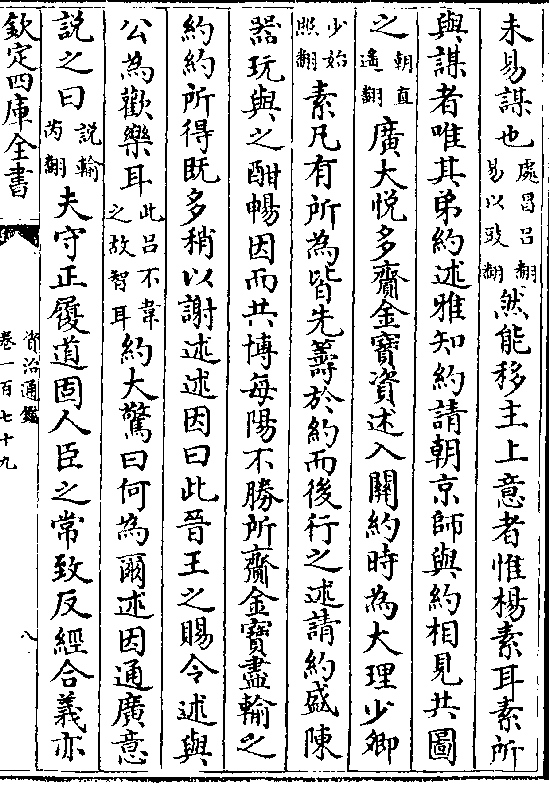 未易謀也處昌呂翻易以豉翻然能移主上意者惟楊素耳素所
與謀者唯其弟約述雅知約請朝京師與約相見共圖
之朝直遙翻廣大悅多齎金寶資述入關約時為大理少卿
少始照翻素凡有所為皆先籌於約而後行之述請約盛陳
器玩與之酣暢因而共博每陽不勝所齎金寶盡輸之
約約所得既多稍以謝述述因曰此晉王之賜令述與
公為歡樂耳此呂不韋之故智耳約大驚曰何為爾述因通廣意
說之曰說輸芮翻夫守正履道固人臣之常致反經合義亦
欽定四庫全書
資治通鑑
卷一百七十九
八